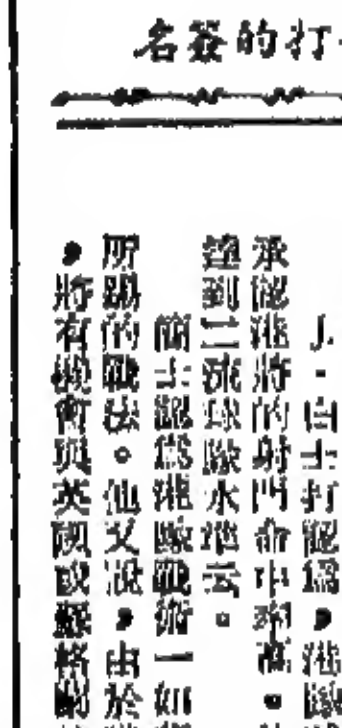 名簽的打
丁‧白士打認為，港
承認港將的射門命中率高。
達到二流球隊水準云。
簡士認爲港隊戰術一如
所踢的戰法。他又說，由於
，將有機會與英國或蘇格蘭